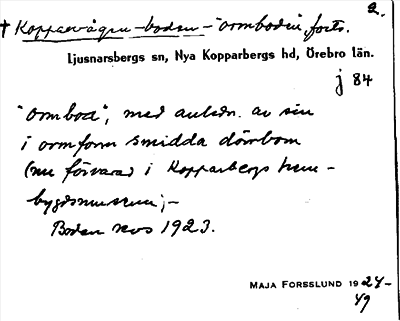 2.
† Kopparvågen-boden - "ormboden", forts.
Ljusnarsbergs sn, Nya Kopparbergs hd, Örebro län.
j 84
"ormbod", med anledn. av sin
i ormform smidda dörrbom
(nu förvarad i Kopparbergs hem-
bygdsmuseum; -
Boden revs 1923.
MAJA FORSSLUND 1924-
49